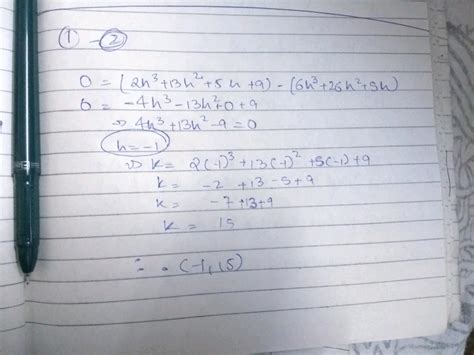 ① - ②
0 = (2h³+13h²+5h+9) - (6h³+26h²+5h)
0 = -4h³-13h²+0+9
⇒ 4h³+13h²-9=0
h=-1
⇒ k= 2(-1)³+13(-1)²+5(-1)+9
k= -2+13-5+9
k= -7+13+9
k= 15
∴ (-1,15)